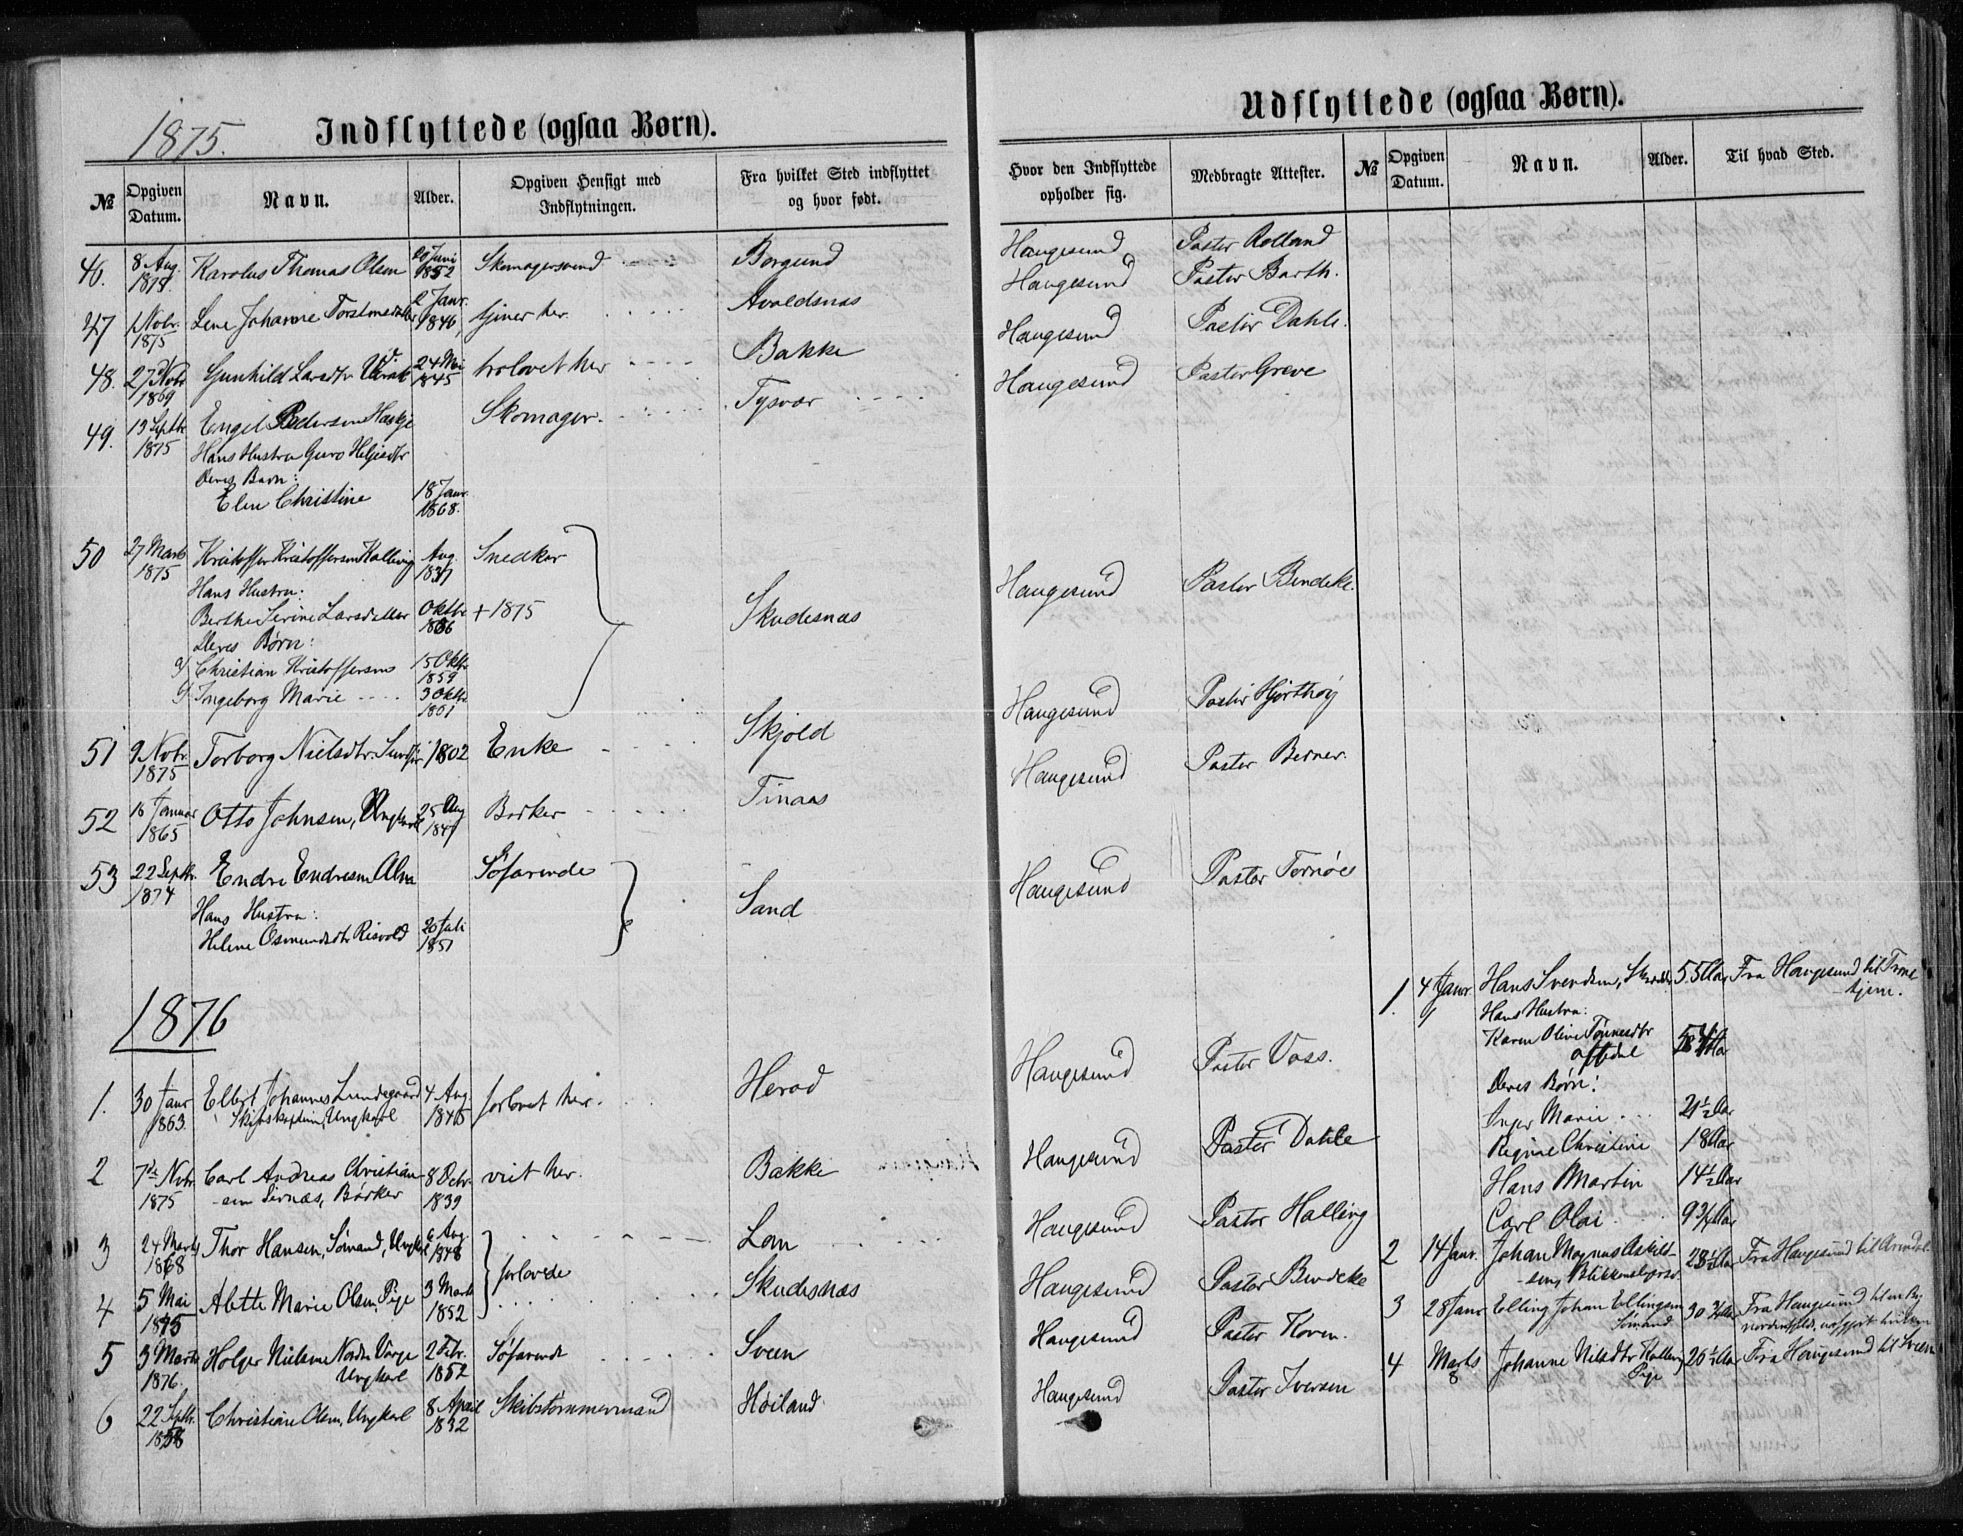 1875.
Indflyttede (ogsaa Børn).
№ Opgiven Datum. Navn. Alder. Opgiven Hensigt med Indflytningen. Fra hvilket Sted indflyttet og hvor født.
46. 8 Aug. 1878. Karolus Thomas Olsen 20 Juni 1852 Skomagersvend Borgund
47 1 Nobr. 1875 Lene Johanne 2 Janr. 1846, tjener her Avaldsnæs
48. 27 Nobr 1869 Gunhild Larsdtr 24 Mai 1845 trolovet her Bakke
49. 13 Septbr 1875 Engel Pedersen Skomager. Tysvær
Hans Hustru Guro Helgesdtr
Deres Barn:
Elen Christine 18 Janr. 1868.
50 27 Marts 1875 Kristoffer Kristoffersen Kallevig Aug. 1837 Snedker
Hans Hustru:
Berthe Serine Larsdatter Oktbr 1836 + 1875 Skudesnæs
Deres Børn:
Christian Kristoffersen 15 Oktbr 1859
Ingeborg Marie 3 Oktbr 1861
51 9 Nobr. 1875 Torborg Nielsdtr. 1802 Enke Skjold
52 16 Januar 1865 Otto Johnsen, Ungkarl 25 Aug 1841 Bødker Tinaas
53 22 Septbr. 1874 Endre Endresen Alne Søfarende
Hans Hustru:
Helene Osmundsdtr Risvold 20 Juli 1851 Sand
1876
1. 30 Janr 1863. Ellert Johannes Lundegaard 4 Aug. 1845 forlovet her. Herad
Ungkarl
2 7de Nobr 1875 Carl Andreas Christian- 8 Octr. 1839 viet her. Bakke
sen Sirnæs, Bødker
3 24 Marts 1868 Thor Hansen, Sømand, Ungkarl 6 Aug. 1848 Lom
forlovede
4 5 Mai 1875 Alette Marie Olsen, Pige 3 Marts 1852 Skudesnæs
5 3 Marts 1876. Holger Nielsen Nordre Varge 2 Febr. 1852 Søfarende Sveen
Ungkarl
6 22 Septbr. 1858 Christian Olsen, Ungkarl 8 April 1832 Skibstømmermand Høiland
Udflyttede (ogsaa Børn).
Hvor den Indflyttede opholder sig. Medbragte Attester. № Opgiven Datum. Navn. Alder. Til hvad Sted.
Haugesund Pastor Rolland
Haugesund Pastor Barth.
Haugesund Pastor Dahle.
Haugesund Pastor Greve
Haugesund Pastor Bendeke.
Haugesund Pastor Hjorthøy
Haugesund Pastor Berner.
Haugesund Pastor Tornøe
1. 4 Janr Hans Svendsen, 55 Aar Fra Haugesund til Trond-
hjem.
Hans Hustru:
Karen Oline Tønnesdtr
Haugesund Pastor Voss.
Deres Børn:
Inger Marie 21½ Aar
Haugesund Pastor Dahle
Regine Christine 18 Aar
Hans Martin 14½ Aar
Haugesund Pastor Halling
Carl Olai 9¾ Aar
Haugesund Pastor Bendeke
2 14 Janr. Johan Magnus Askild- 28½ Aar Fra Haugesund til Arendal
sen, Blikkenslager
Haugesund Pastor Koren.
3 28 Janr Elling Johan Ellingsen 30¾ Aar Fra Haugesund til en By
Sømand
Haugesund Pastor Iversen
4 Marts 8 Johanne Nilsdtr 26½ Aar Fra Haugesund til Sveen
Pige